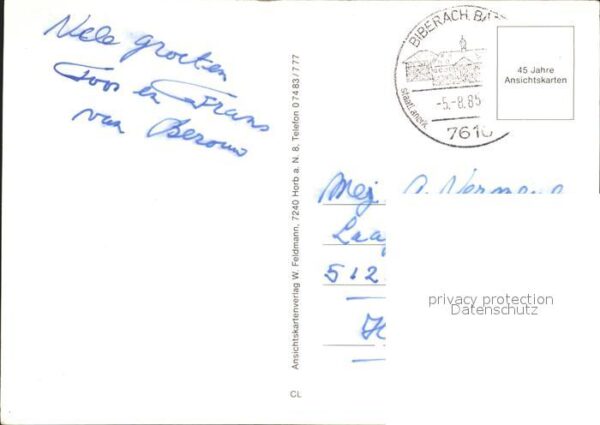 Vele groeten
Toos en Frans
van
BIBERACH, BA
staatl. anerk.
-5.-8.85
7616
45 Jahre
Ansichtskarten
Ansichtskartenverlag W. Feldmann, 7240 Horb a. N. 8, Telefon 0 74 83 / 777
Mej
512
privacy protection
Datenschutz
CL